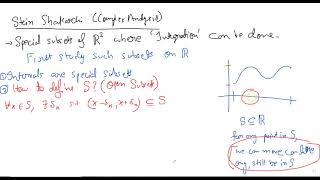 Stein Shakarchi (Complex Analysis)
→ Special subsets of R² where 'Integration' can be done.
First study such subsets on R
① Intervals are special subsets
② How to define S? (Open Subset)
∀x∈S, ∃ δx s.t (x-δx, x+δx) ⊆ S
S⊆R
for any point in S,
we can move
still be in S